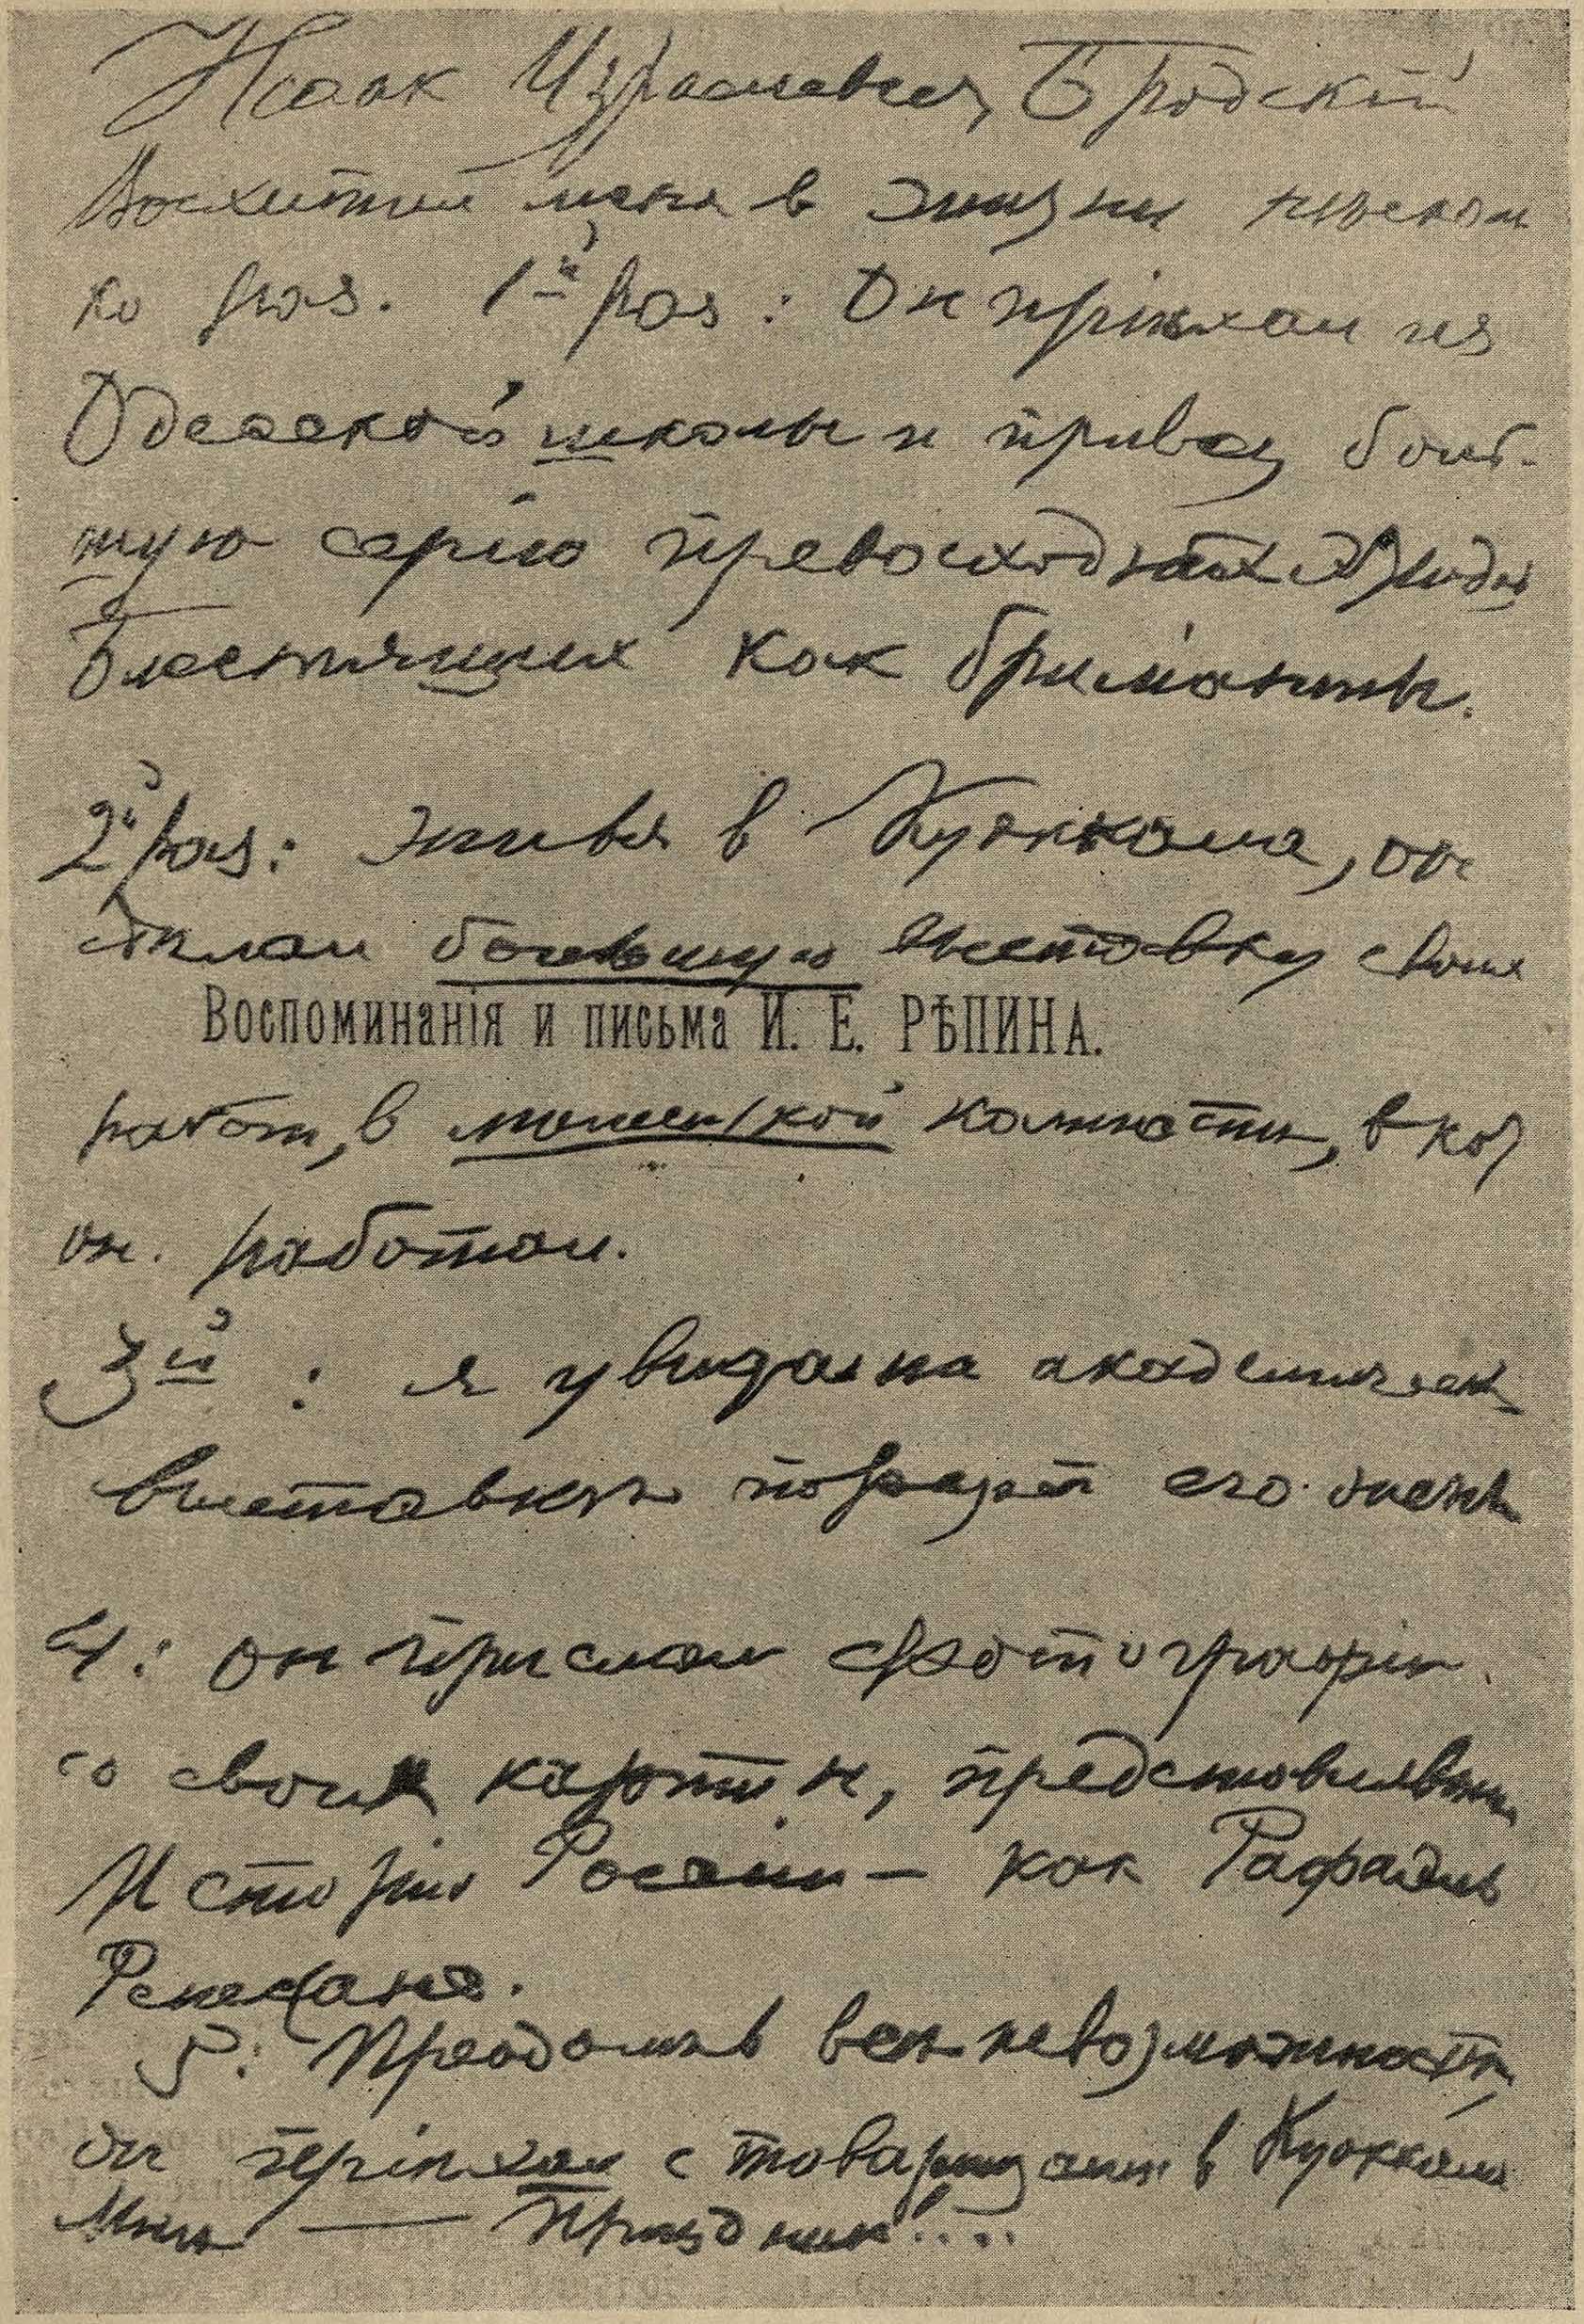 Исаак Израилевич Бродскій
Восхитил меня в жизни нѣсколь
ко раз. 1й раз: Он пріѣхал из
Одесской школы и привез боль-
шую серію превосходных этюдов
блестящих как брилианты.
2й раз: живя в Куоккала, он
сдѣлал большую выставку своих
Воспоминанія и письма И. Е. РѢПИНА.
работ, в маленькой комнатѣ, в кот
он. работал.
3й : я увидал на академическ
выставкѣ портрет его жены
4: он прислал фотографіи
со своих картин, представлявших
Исторію Россіи — как Рафаэль
5: Преодолѣв всѣ невозможности,
он пріѣхал с товарищами в Куоккала
Мнѣ — Праздник!....